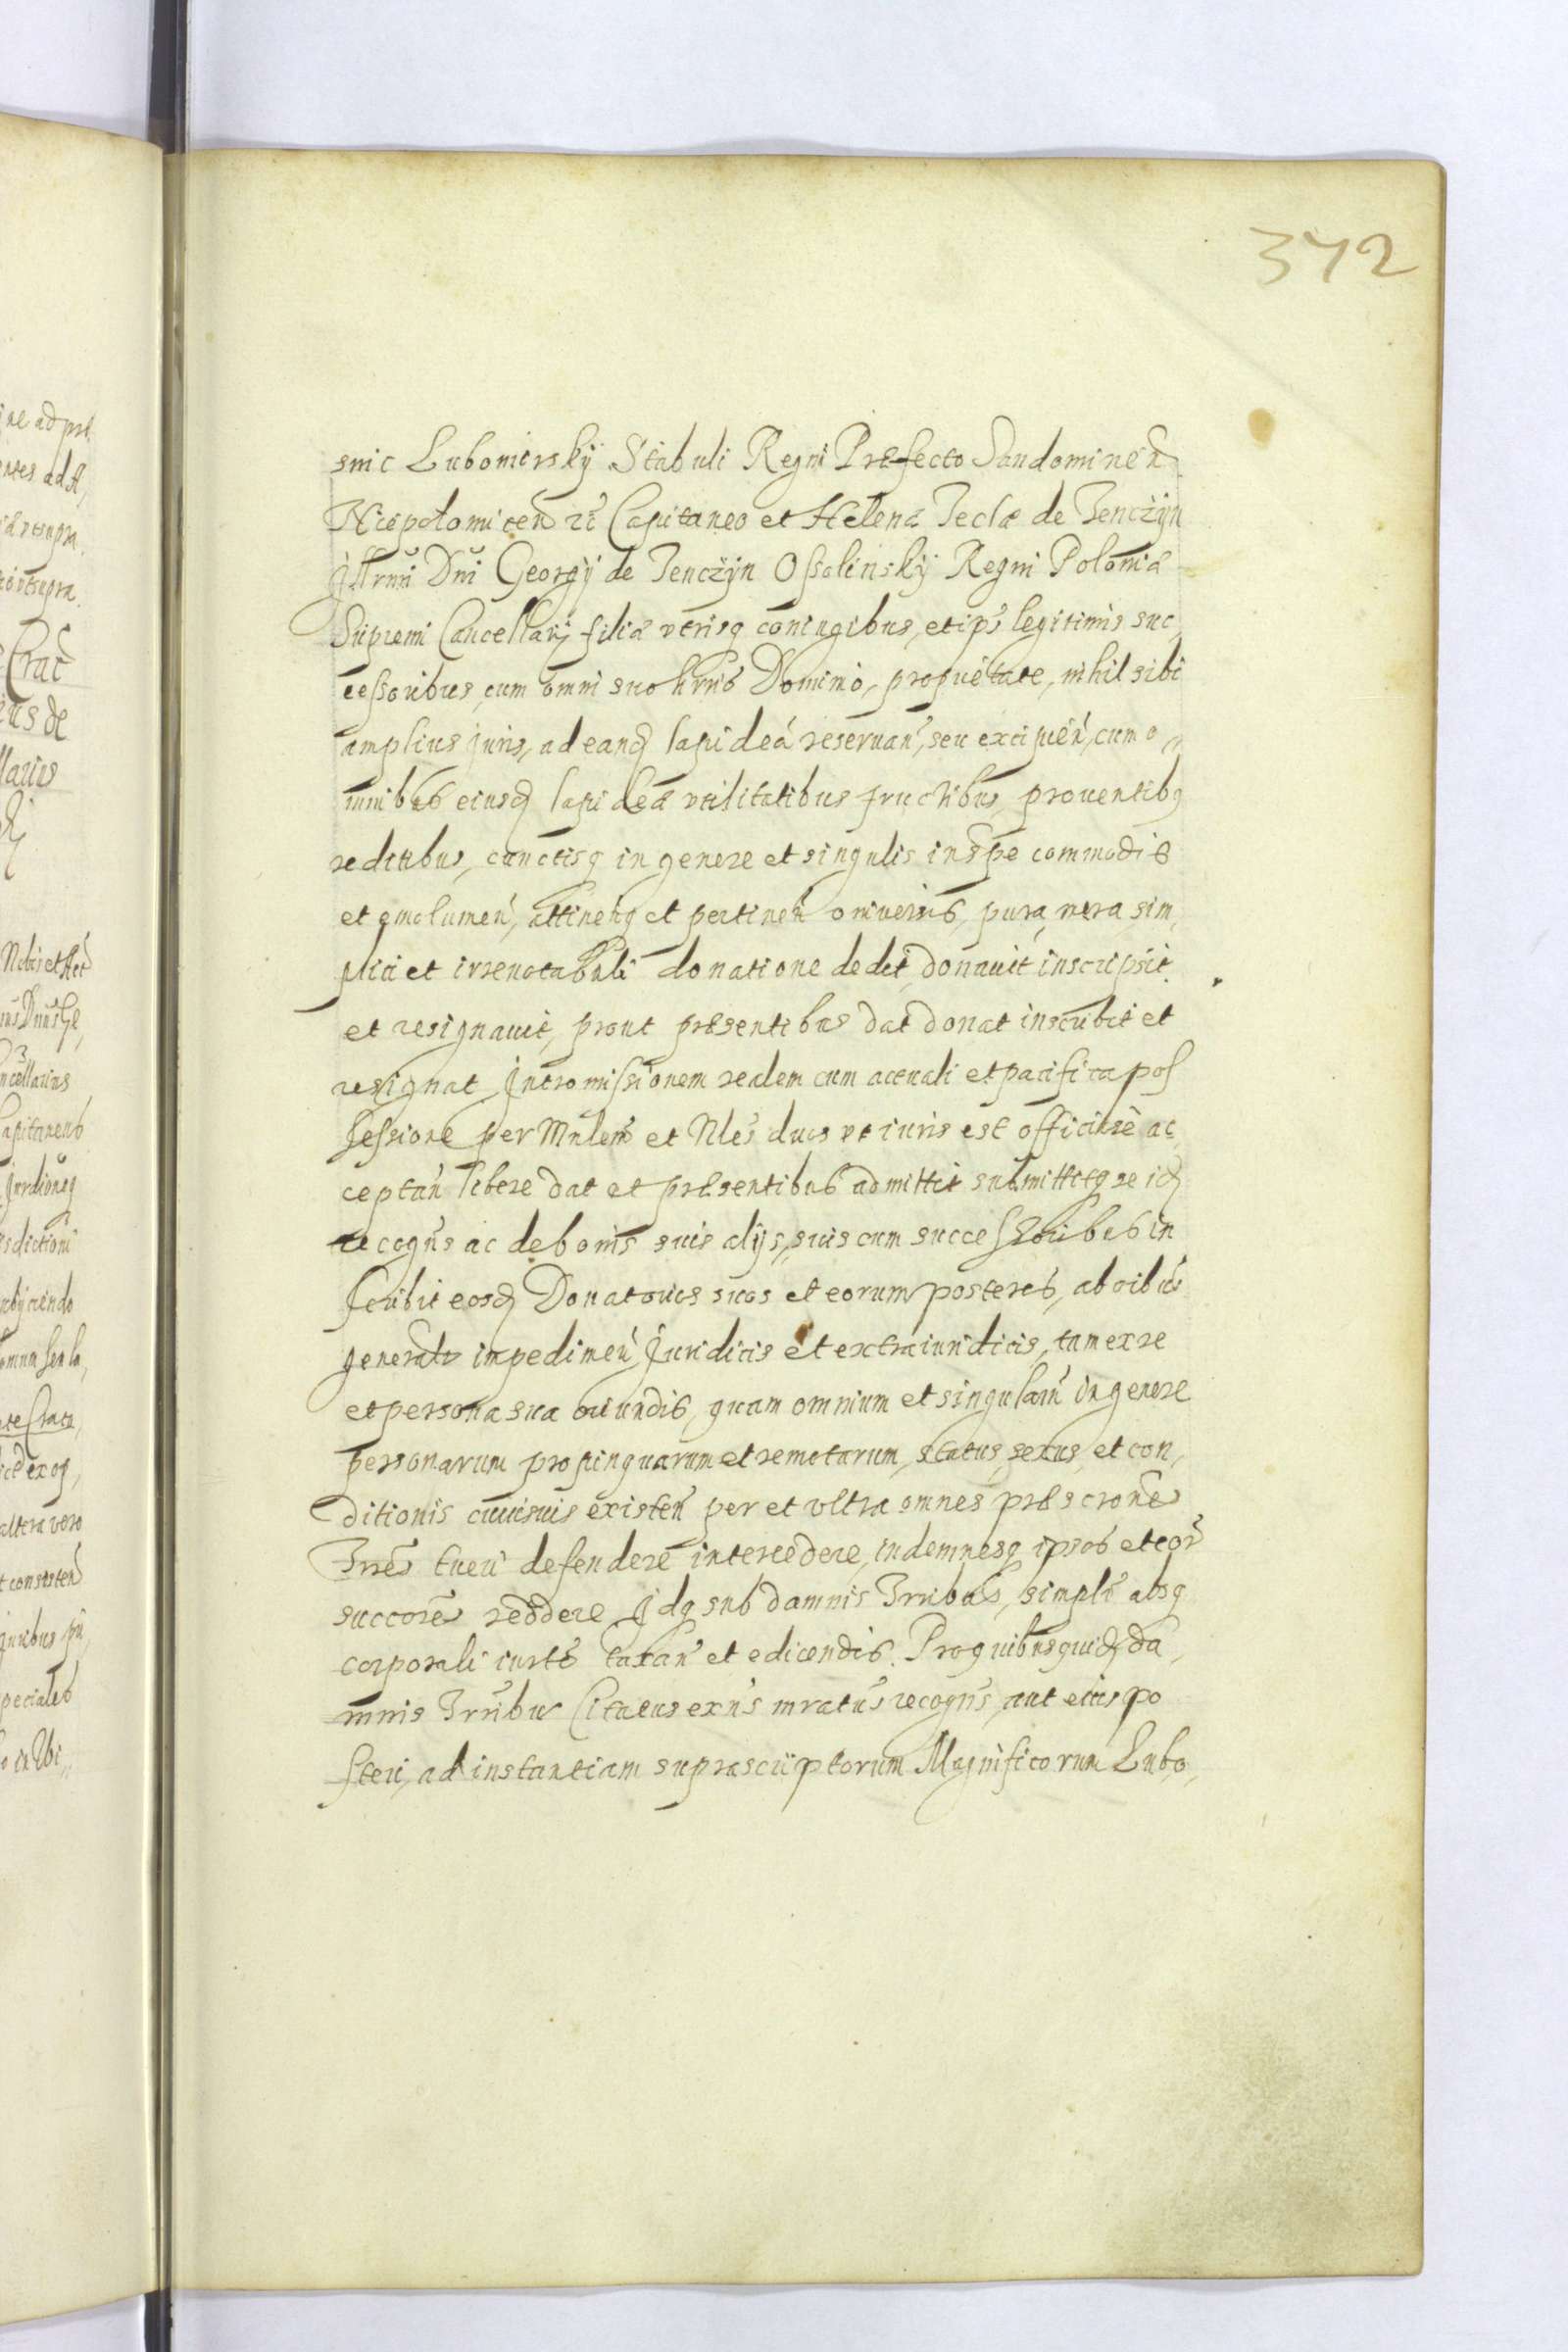 342
snic Lubomirskÿ Stabuli Regni Præfecto Sandomirien̄
Niepołomicen̄ rē Capitaneo et Helenæ Teclæ de Tenczÿn
Illrmi Dni Georgÿ de Tenczÿn Ossolinskÿ Regni Poloniæ
Supremi Cancellarij filiæ vtrisq coniugibus, et ips legitimis suc,
cessoribus, cum omni suo Dominio, proprietate, nihil sibi
amplius juris, ad eand lapideā reseruan̄, seu excipien̄, cum o,
mnibus eiusd lapideæ vtilitatibus fructibus, prouentibq
reditibus, cunctisq in genere et singulis in spe commodis
et emolumen̄, attinenq et pertinen̄ vniuersis, pura, mera, sim,
plici et irreuocabili donatione dedit, donauit inscripsit
et resignauit, prout præsentibus dat donat inscribit et
resignat Intromissionem realem cum actuali et pacifica pos
sessione per Mnlem et Nles duos vt iuris est officiose ac,
ceptan̄ libere dat et præsentibus admittit submittitq se id
recogns ac de bonis suis alÿs, suis cum successoribus in
scribit eosd Donatorios suos et eorum posteros, ab oibus
generalr impedimen̄ Iuridicis et extraiuridicis, tam ex re
et persona sua oriundis, quam omnium et singularū in genere
personarum propinquarum et remotarum, status, sexus, et con,
ditionis cuiusuis existen̄ per et vltra omnes præscrones
Trres tueri defendere intercedere, indemnesq ipsos et eor
succores reddere Idq sub damnis Trribus, simpli absq
corporali iurto taxan̄ et edicendis. Pro quibusquid da,
mnis Trribus Citatus exns mratus recogns aut eius po
steri, ad instantiam suprascriptorum Magnificorum Lubo,
ne ad præ
ad A,
vt supra
vt supra
Crac
us de
llarius
Nobis et
ncellarius
Capitaneus
sdictioni
ubÿciendo
Crac,
ice ex oq,
altera vero
t consisten̄
juribus pu
peciales